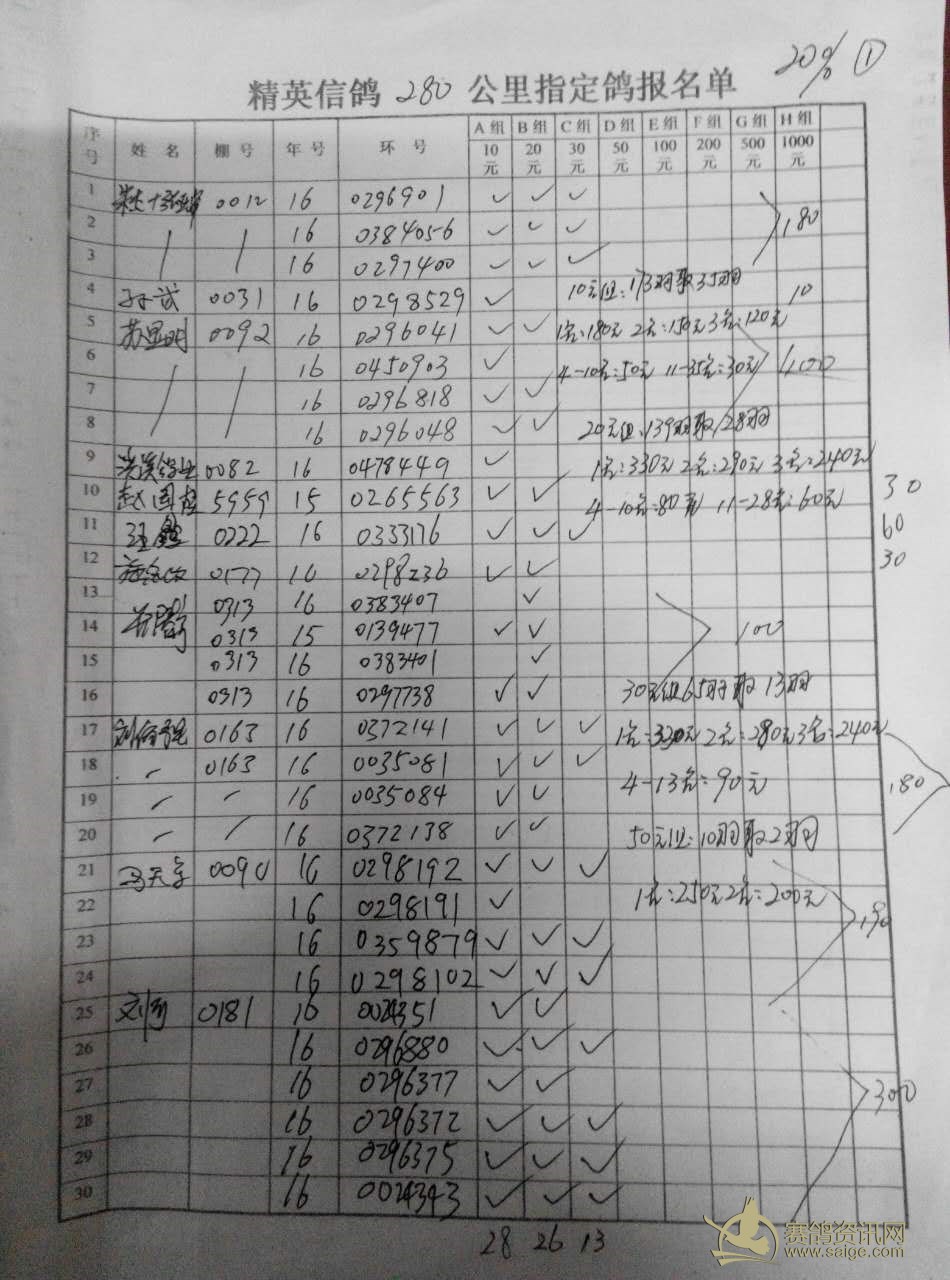 20% ①
精英信鸽 280 公里指定鸽报名单
序号 姓 名 棚 号 年 号 环 号 A 组 10元 B 组 20元 C 组 30元 D 组 50元 E 组 100元 F 组 200元 G 组 500元 H 组 1000元
1 0012 16 0296901 ✓ ✓ ✓
2 16 0384056 ✓ ✓ ✓ 180
3 16 0297400 ✓ ✓ ✓
4 孙武 0031 16 0298529 ✓ 10元组:173羽取35羽 10
5 苏显明 0092 16 0296041 ✓ ✓ 1名:180元 2名:150元 3名:120元
6 16 0450903 ✓ 4-10名:50元 11-35名:30元
7 16 0296818 ✓ ✓
8 16 0296048 ✓ ✓ 20元组:139羽取28羽
9 0082 16 0478449 ✓ 1名:330元 2名:290元 3名:240元
10 赵国 5959 15 0265563 ✓ ✓ 4-10名:80元 11-28名:60元 30
11 王 0222 16 0333176 ✓ ✓ ✓ 60
12 0177 16 0298236 ✓ ✓ 30
13 0313 16 0383407 ✓
14 0313 15 0139477 ✓ ✓ 100
15 0313 16 0383401 ✓
16 0313 16 0297738 ✓ ✓ 30元组65羽取13羽
17 刘 0163 16 0372141 ✓ ✓ ✓ 1名:330元 2名:280元 3名:240元
18 0163 16 0035081 ✓ ✓ ✓ 4-13名:90元 180
19 16 0035084 ✓ ✓
20 16 0372138 ✓ ✓ 50元组:10羽取2羽
21 马天 0090 16 0298192 ✓ ✓ ✓
22 16 0298191 ✓ 1名:250元 2名:200元 190
23 16 0359879 ✓ ✓ ✓
24 16 0298102 ✓ ✓ ✓
25 刘 0181 16 0024351 ✓ ✓
26 16 0296880 ✓ ✓ ✓
27 16 0296377 ✓ ✓ 300
28 16 0296372 ✓ ✓ ✓
29 16 0296375 ✓ ✓ ✓
30 16 0024343 ✓ ✓ ✓
28 26 13
赛鸽资讯网
www.saige.com